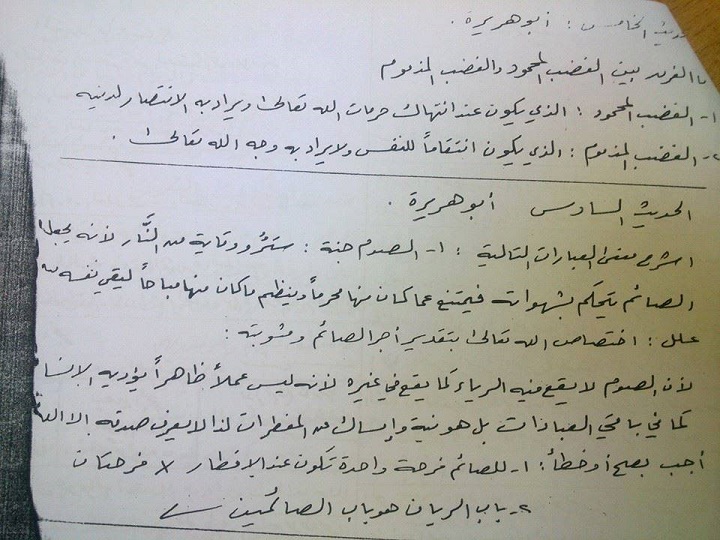 الحديث الخامس : أبو هريرة .
ما الفرق بين الغضب المحمود والغضب المذموم
١- الغضب المحمود : الذي يكون عند انتهاك حرمات الله تعالى ويراد به الانتصار لدينه
٢- الغضب المذموم : الذي يكون انتقاماً للنفس ولا يراد به وجه الله تعالى .
الحديث السادس أبو هريرة .
اشرح معنى العبارات التالية : ١- الصوم جنة : ستر ووقاية من النَّار لأنه يجعل
الصائم يتحكم بشهواته فيمتنع عما كان منها محرماً وينظم ما كان منها مباحاً ليقي نفسه من
علل : اختصاص الله تعالى بتقدير أجر الصائم ومثوبته :
لأن الصوم لا يقع فيه الرياء كما يقع في غيره لأنه ليس عملاً ظاهراً يؤديه الإنسا
كما في باقي العبادات بل هو نية وإمساك عن المفطرات لذا لا يعرف صدقه إلا الله
أجب بصح أو خطأ : ١- للصائم فرحة واحدة تكون عند الإفطار × فرحتان
٢- باب الريان هو باب الصائمين